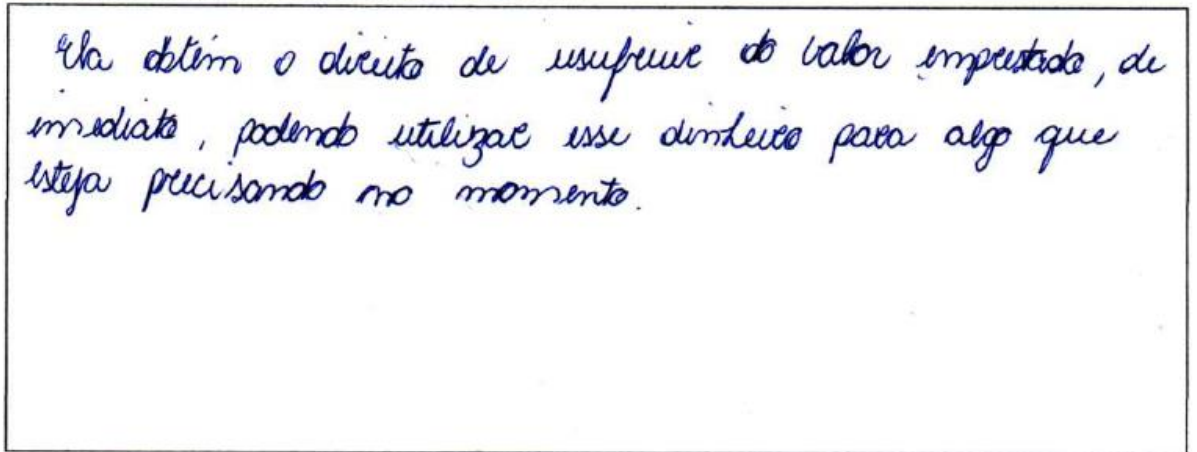 Ela obtém o direito de usufruir do valor emprestado, de
imediato, podendo utilizar esse dinheiro para algo que
esteja precisando no momento.